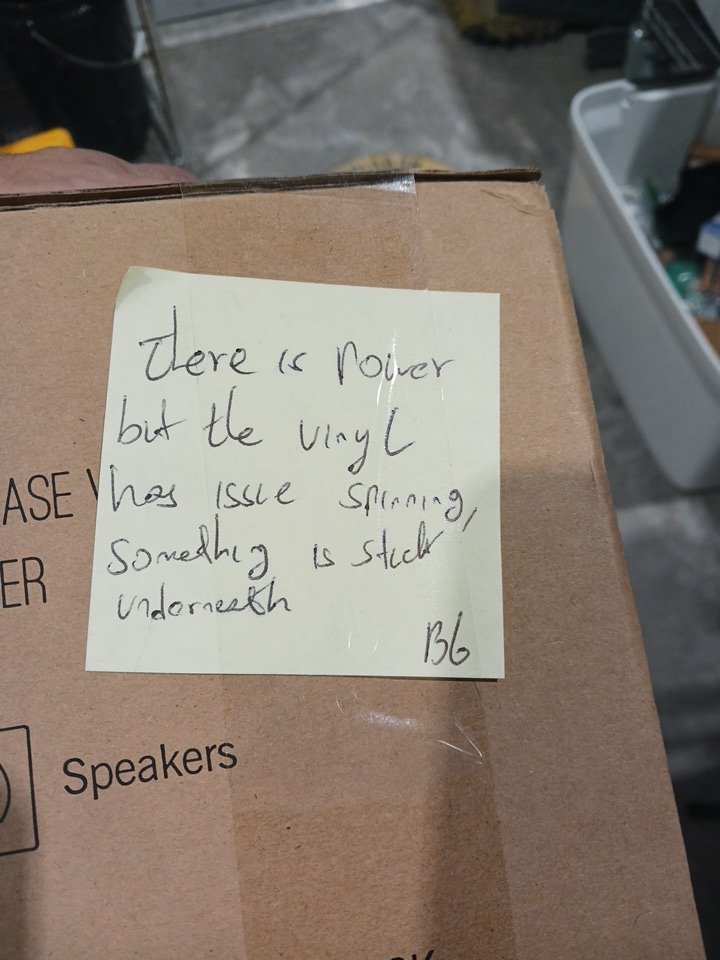 there is power
but the vinyl
has issue spinning,
something is stuck
underneath
B6
ASE
ER
Speakers